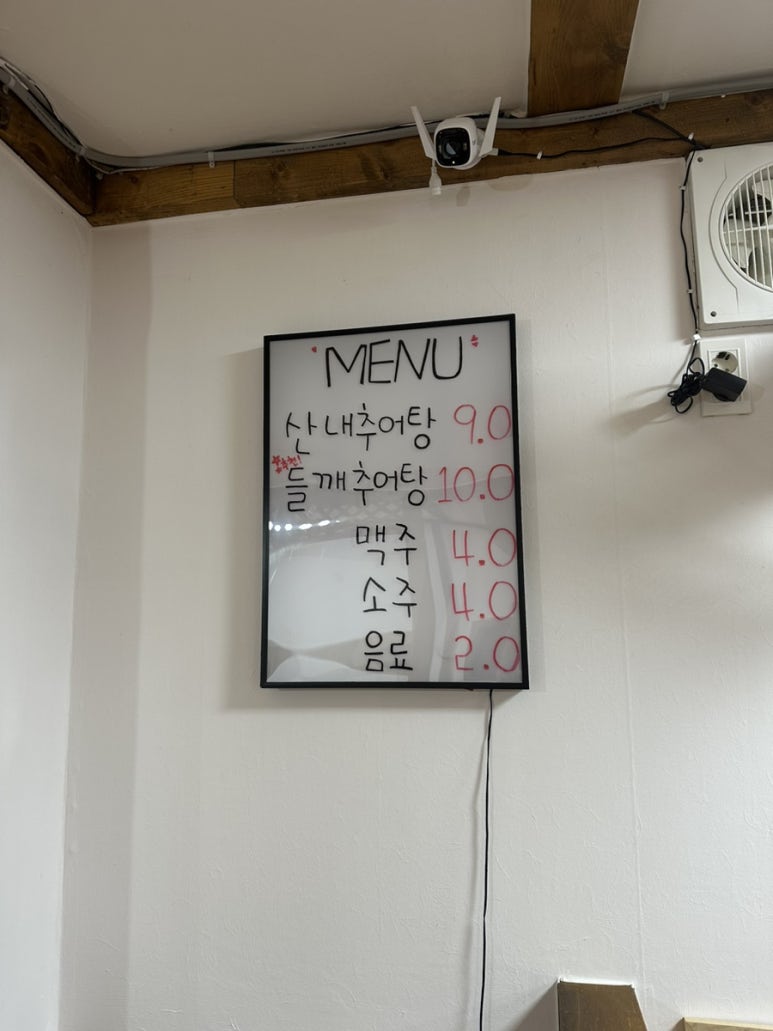 MENU
산내추어탕 9.0
추천!
들깨추어탕 10.0
맥주 4.0
소주 4.0
음료 2.0